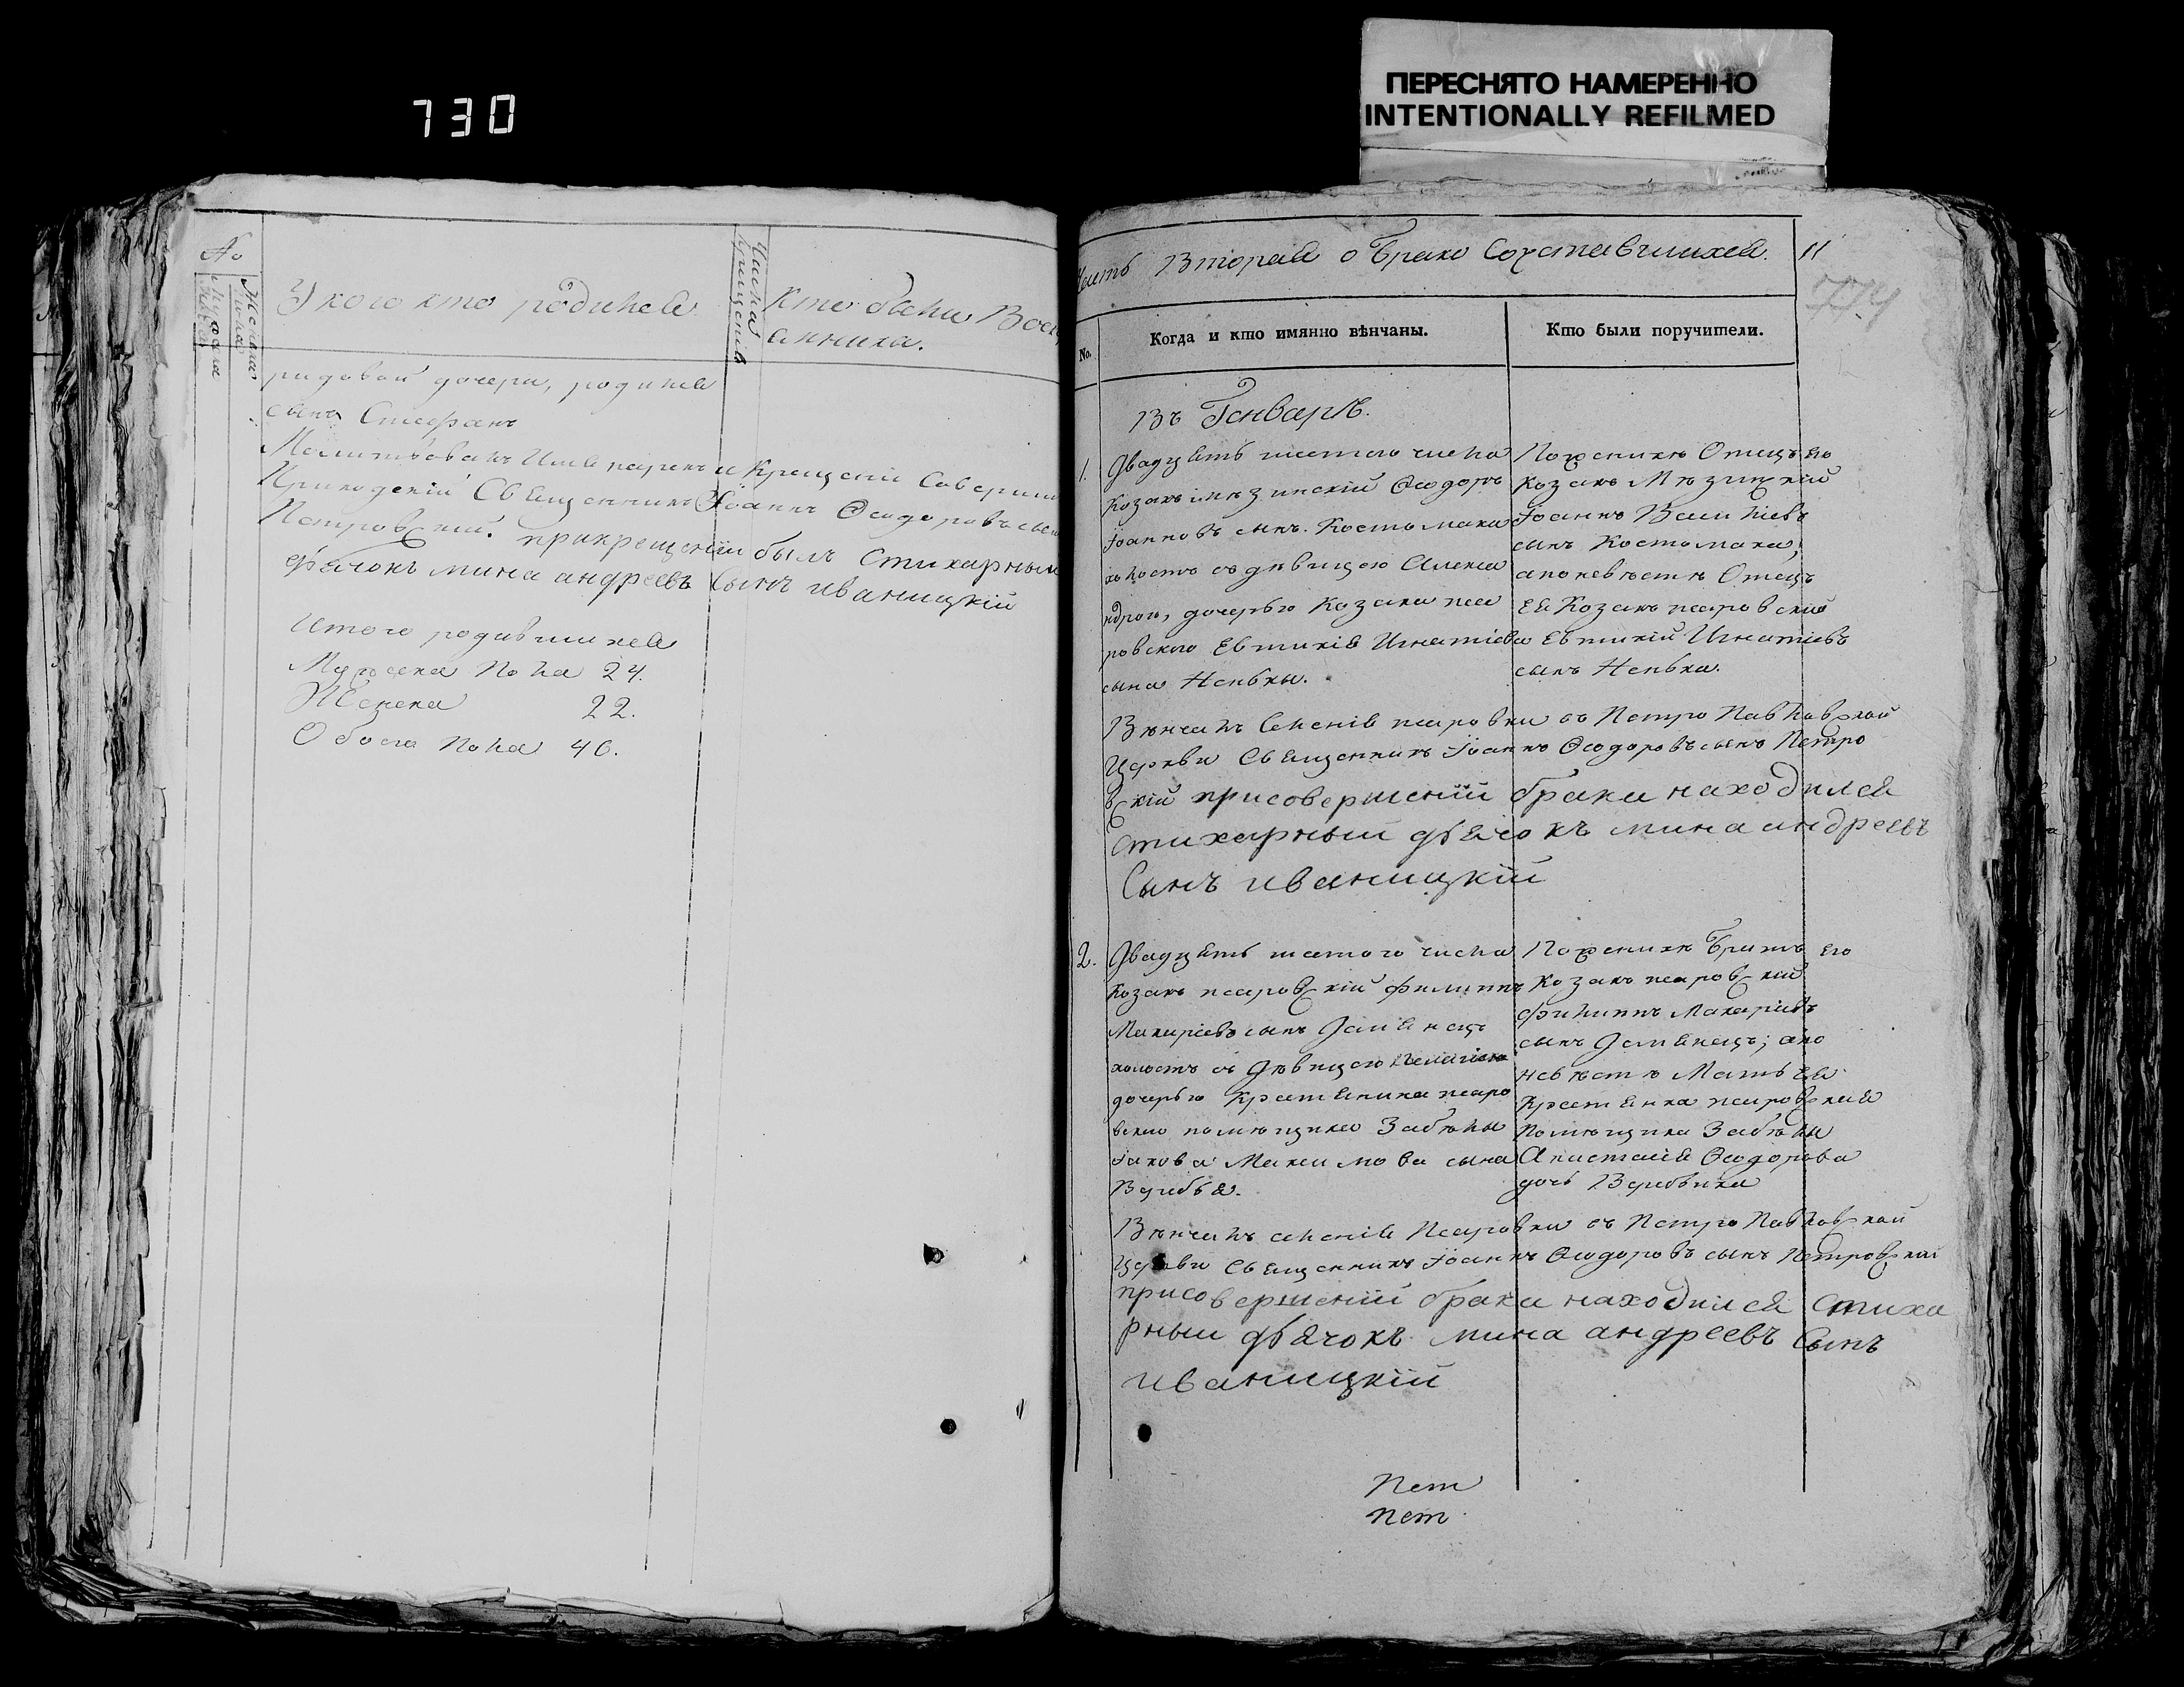 730
ПЕРЕСНЯТО НАМЕРЕННО
INTENTIONALLY REFILMED
№
Мужеска пола
Женска пола
У кого кто родился
Числа крещенія
Кто были
рядовой дочери, родился
сынъ Стефанъ
Молитвовалъ Имя нарекъ и Крещеніе Соверши
Приходскій Священникъ Іоаннъ Феодоровъ сынъ
Петровскій. прикрещеніи былъ Стихарный
дьячокъ мина андреевъ Сынъ иваницкій
Итого родившихся
Мужеска Пола 24.
Женска 22.
Обоего Пола 46.
Часть Вторая о Бракосочетавшихся. 11
No.
Когда и кто имянно вѣнчаны.
Кто были поручители.
Въ Генварѣ.
1. Двадцять шестого числа
Козакъ мѣзинскій Феодоръ
Іоанновъ сынъ Костомаха
холостъ съ дѣвицею Алекса
ндрою, дочерью Козака пса
ровского Евтихія Игнатіева
сына Непьки.
По женихѣ Отецъ его
Козакъ Мѣзинскій
Іоаннъ Васильевъ
сынъ Костомаха,
а по невѣстѣ Отецъ
ея Козакъ псаровскій
Евтихій Игнатіевъ
сынъ Непька.
Вѣнчалъ Селенія псаровки съ Петро Павловской
Церкви Священникъ Іоаннъ Феодоровъ сынъ Петро
вскій присовершеніи брака находился
стихарный дьячокъ мина андреевъ
Сынъ иваницкій
2. Двадцять шестого числа
Козакъ псаровскій Филиппъ
Макаріевъ сынъ
холостъ съ Дѣвицею Пелагіею
дочерью Крестянина псаро
вского помѣщика Забѣлы
Іакова Максимова сына
По женихѣ Братъ его
Козакъ псаровскій
Филиппъ Макаріевъ
сынъ а по
невѣстѣ Мать ея
Крестянка псаровская
Помѣщика Забѣлы
Анастасія Феодорова
дочь
Вѣнчалъ селенія Псаровки съ Петро Павловской
Церкви Священникъ Іоаннъ Феодоровъ сынъ Петровскій
присовершеніи брака находился стиха
рный дьячокъ мина андреевъ Сынъ
иваницкій